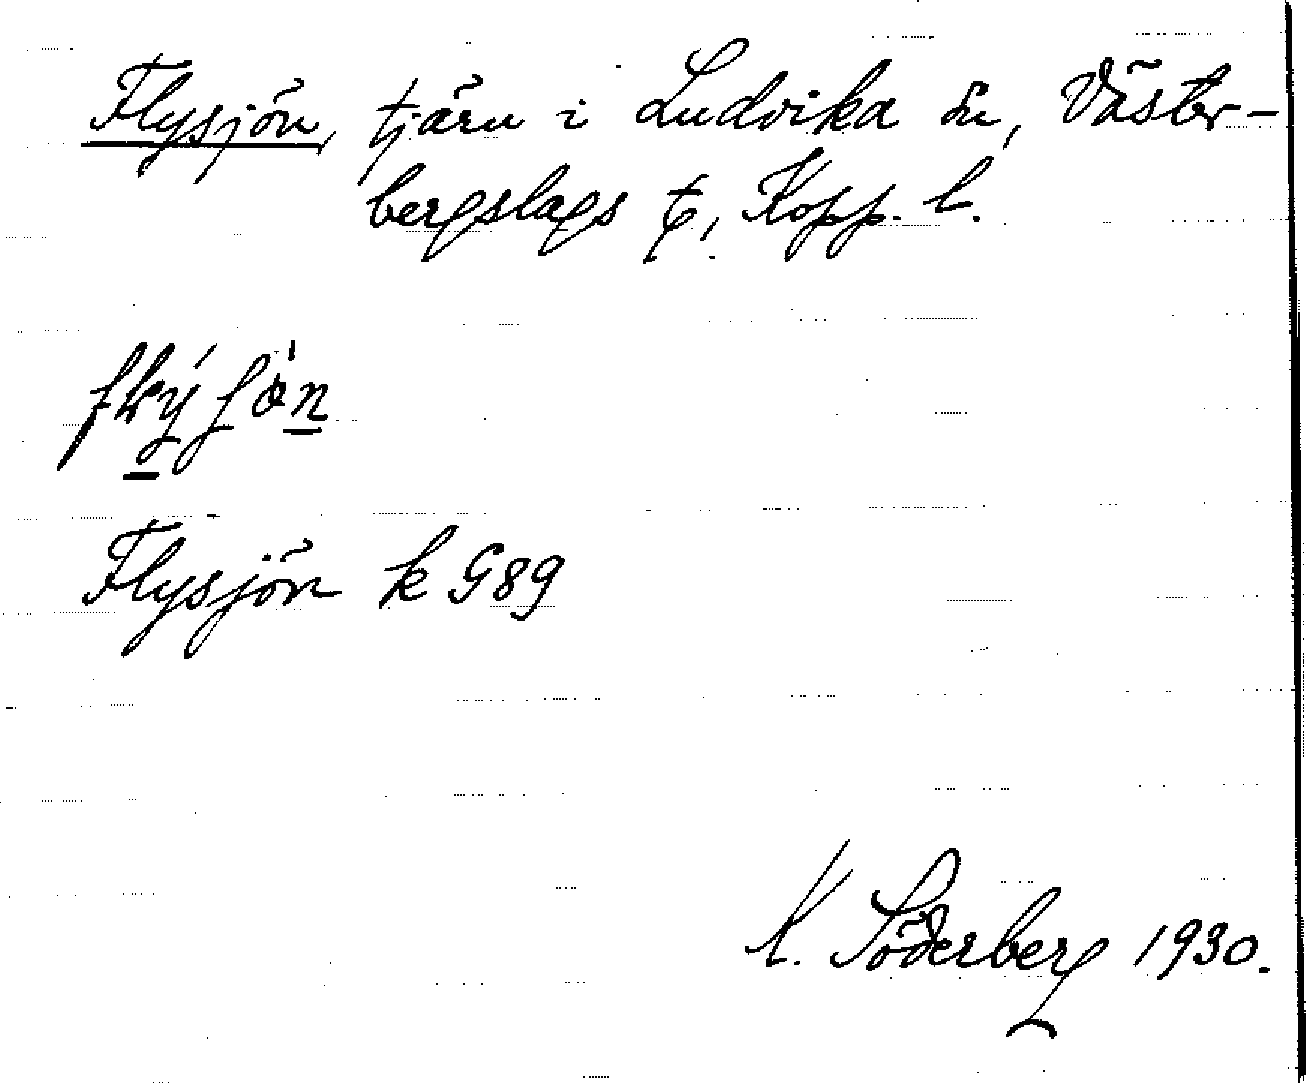 Flysjön, tjärn i Ludvika sn, Väster-
bergslags t, Kopp. l.
Flysjön k G89
K. Söderberg 1930.